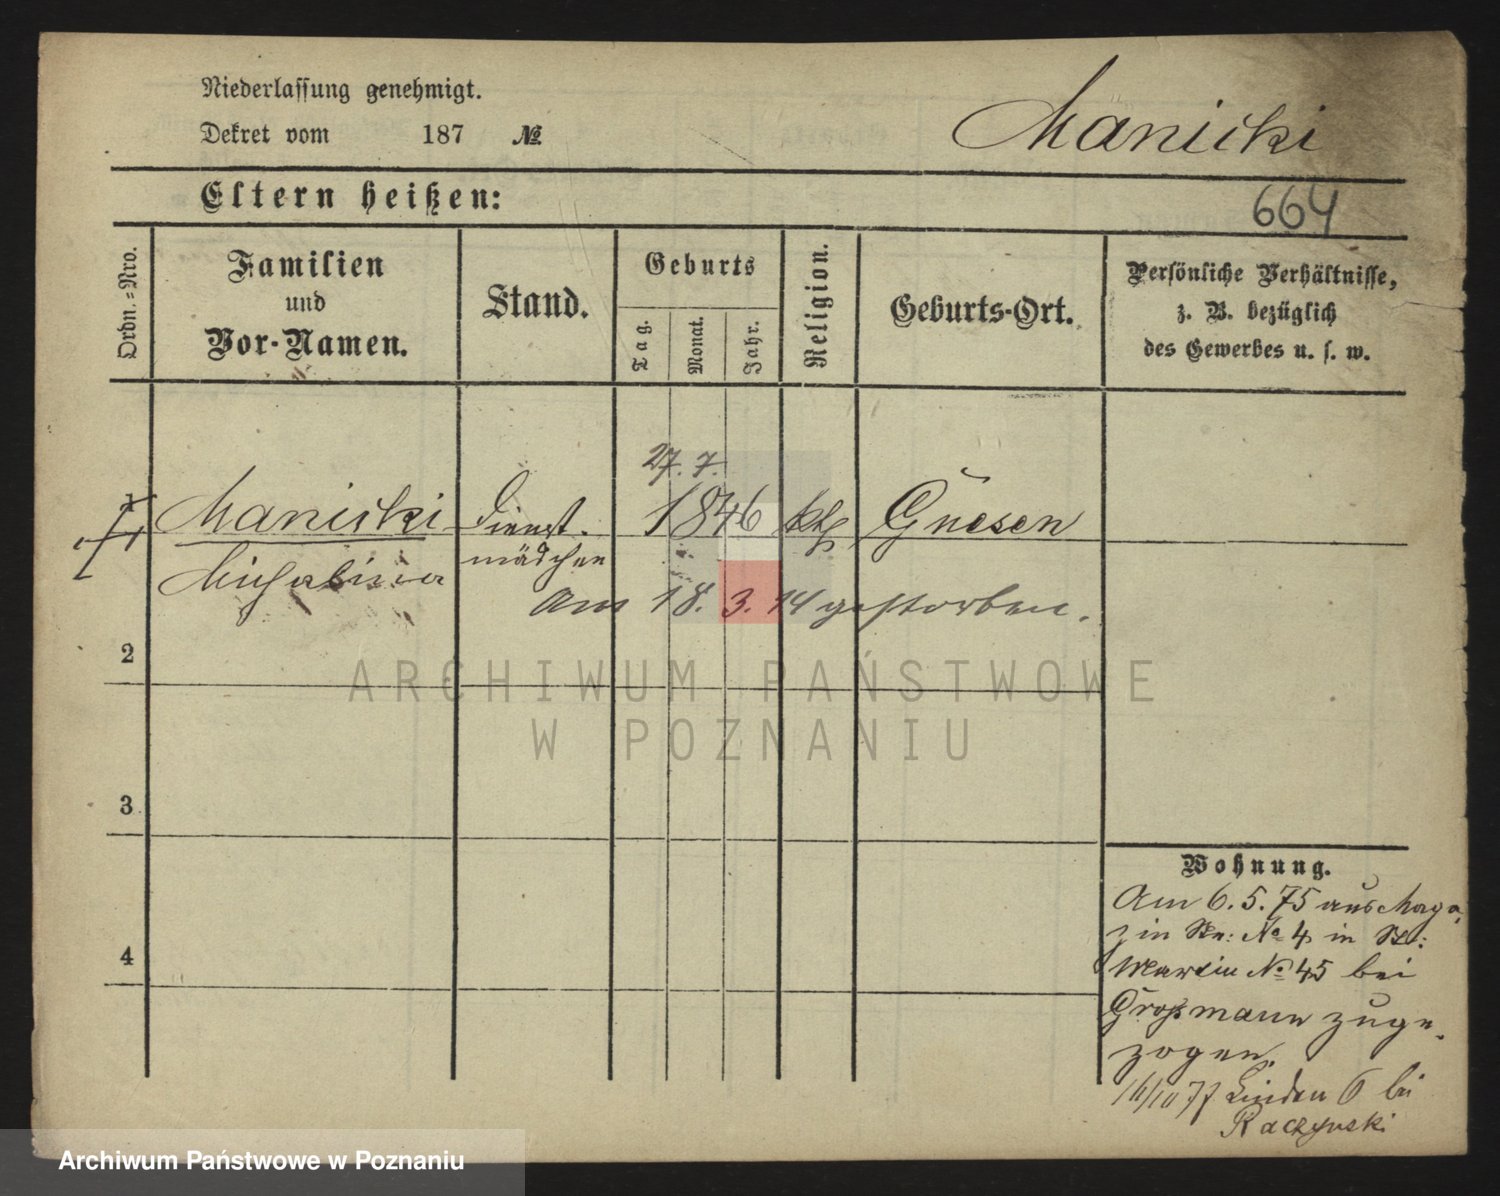 Niederlassung genehmigt.
Dekret vom 187 №
Manicki
Eltern heißen:
664
Ordn.=Nro.
Familien
und
Vor-Namen.
Stand.
Geburts
Tag.
Monat.
Jahr.
Religion.
Geburts-Ort.
Persönliche Verhältnisse,
z. B. bezüglich
des Gewerbes u. s. w.
27. 7.
1 Manicki Dienst- 1846 kth Gnesen
Michalina mädchen
Am 18. 3. 14 gestorben.
2
ARCHIWUM PAŃSTWOWE
W POZNANIU
3
4
Wohnung.
Am 6. 5. 75 aus Maga-
zin Str: № 4 in St:
Martin № 45 bei
Großmann zuge-
zogen.
16/10 77 Linden 6 bei
Raczynski
Archiwum Państwowe w Poznaniu